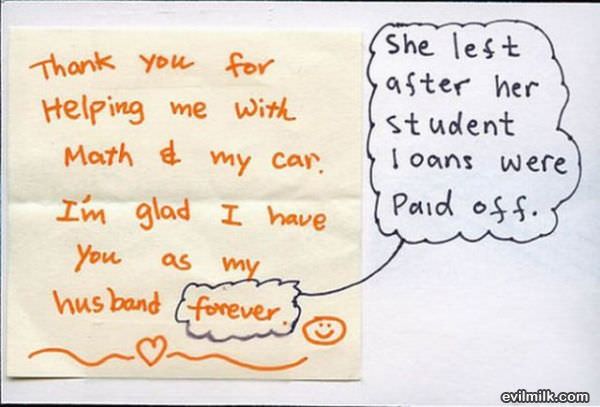 Thank you for
Helping me with
Math & my car.
I'm glad I have
you as my
husband forever.
She left
after her
student
loans were
Paid off.
evilmilk.com